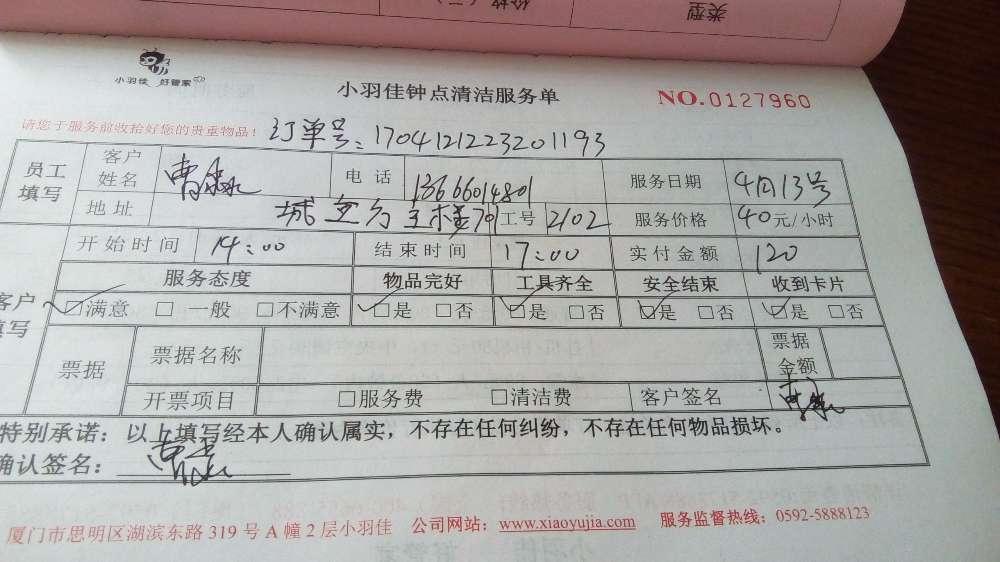 价格(元) 类型
小羽佳 好管家
小羽佳钟点清洁服务单 NO.0127960
请您于服务前收拾好您的贵重物品! 订单号:1704121223201193
员工填写 客户姓名 曹 电话 13666014801 服务日期 4月13号
地址 楼701 工号 2102 服务价格 40元/小时
开始时间 14:00 结束时间 17:00 实付金额 120
客户填写 服务态度 物品完好 工具齐全 安全结束 收到卡片
☑满意 □一般 □不满意 ☑是 □否 ☑是 □否 ☑是 □否 ☑是 □否
票据 票据名称 票据金额
开票项目 □服务费 □清洁费 客户签名 曹
特别承诺:以上填写经本人确认属实,不存在任何纠纷,不存在任何物品损坏。
确认签名: 曹
厦门市思明区湖滨东路 319 号 A 幢 2 层小羽佳 公司网站:www.xiaoyujia.com 服务监督热线:0592-5888123